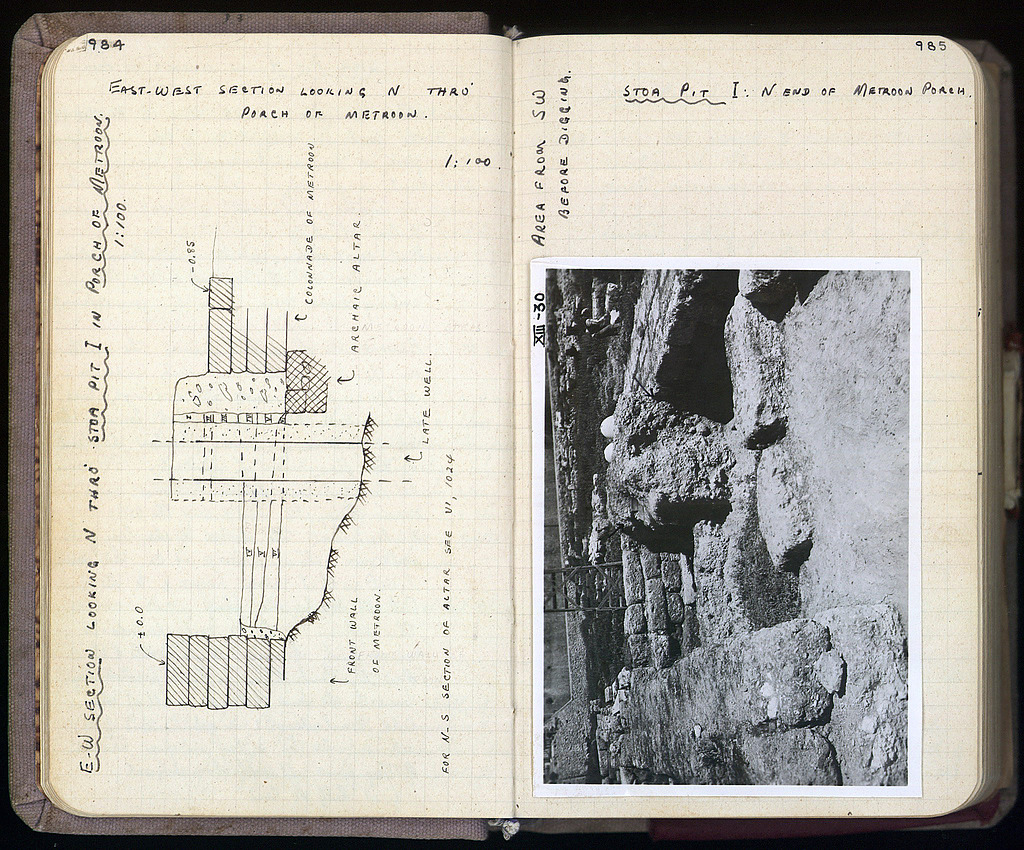 984
EAST-WEST SECTION LOOKING N THRO'
PORCH OF METROON.
1:100.
E-W SECTION LOOKING N THRO' STOA PIT I IN PORCH OF METROON.
1:100.
-0.85
COLONNADE OF METROON
ARCHAIC ALTAR.
LATE WELL.
I II III IV V VI
IV V VI
± 0.0
FRONT WALL
OF METROON.
FOR N-S SECTION OF ALTAR SEE VI, 1024
985
STOA PIT I: N END OF METROON PORCH.
AREA FROM SW
BEFORE DIGGING.
XIII-30